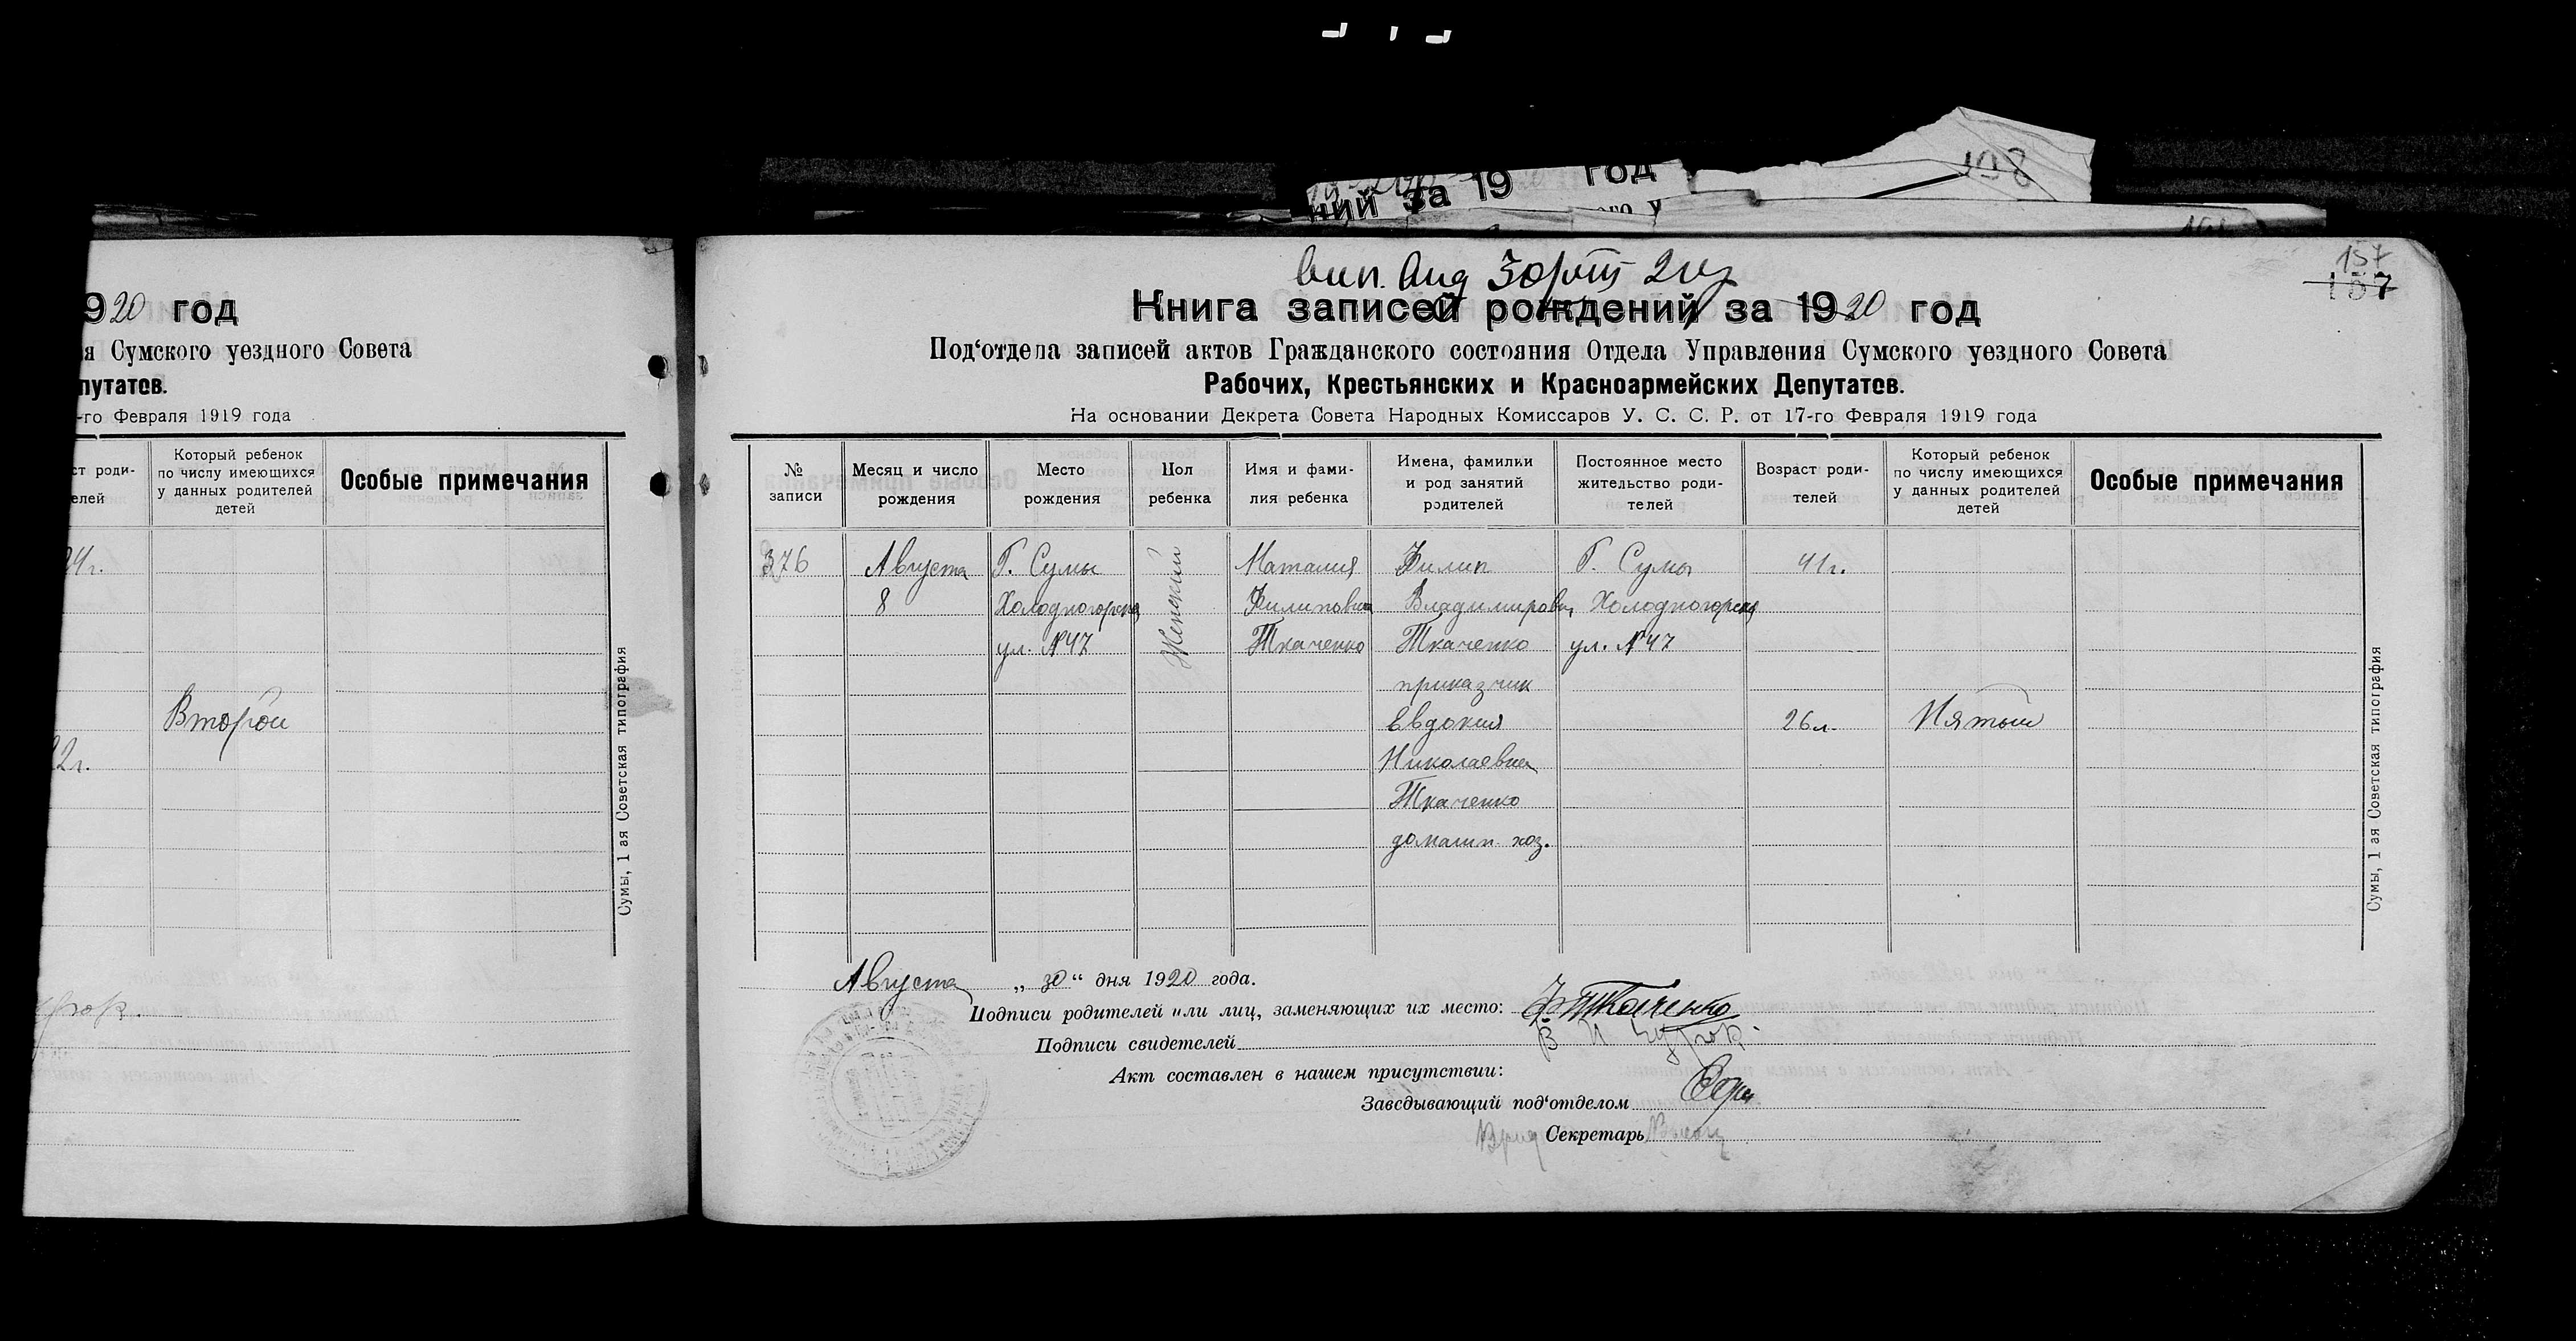 ний за 19 год
198
920 год
я Сумского уездного Совета
путатов.
-го Февраля 1919 года
ст роди-
елей
Который ребенок
по числу имеющихся
у данных родителей
детей
Особые примечания
24г.
Второй
22г.
Сумы, 1 ая Советская типография
157
157
Книга записей рождений за 1920 год
Под‘отдела записей актов Гражданского состояния Отдела Управления Сумского уездного Совета
Рабочих, Крестьянских и Красноармейских Депутатов.
На основании Декрета Совета Народных Комиссаров У. С. С. Р. от 17-го Февраля 1919 года
№
записи
Месяц и число
рождения
Место
рождения
Пол
ребенка
Имя и фами-
лия ребенка
Имена, фамилии
и род занятий
родителей
Постоянное место
жительство роди-
телей
Возраст роди-
телей
Который ребенок
по числу имеющихся
у данных родителей
детей
Особые примечания
376
Августа
8
Г. Сумы
Холодногорская
ул. №47
Женский
Наталия
Филиповна
Ткаченко
Филип
Владимирович
Ткаченко
приказчик
Евдокия
Николаевна
Ткаченко
домашн. хоз.
Г. Сумы
Холодногорская
ул. №47
41г.
26л.
Пятый
Сумы, 1 ая Советская типография
Августа „ 30 “ дня 1920 года.
Подписи родителей или лиц, заменяющих их место: Ф Ткаченко
Подписи свидетелей
Акт составлен в нашем присутствии:
Заведывающий под‘отделом
Врид Секретарь